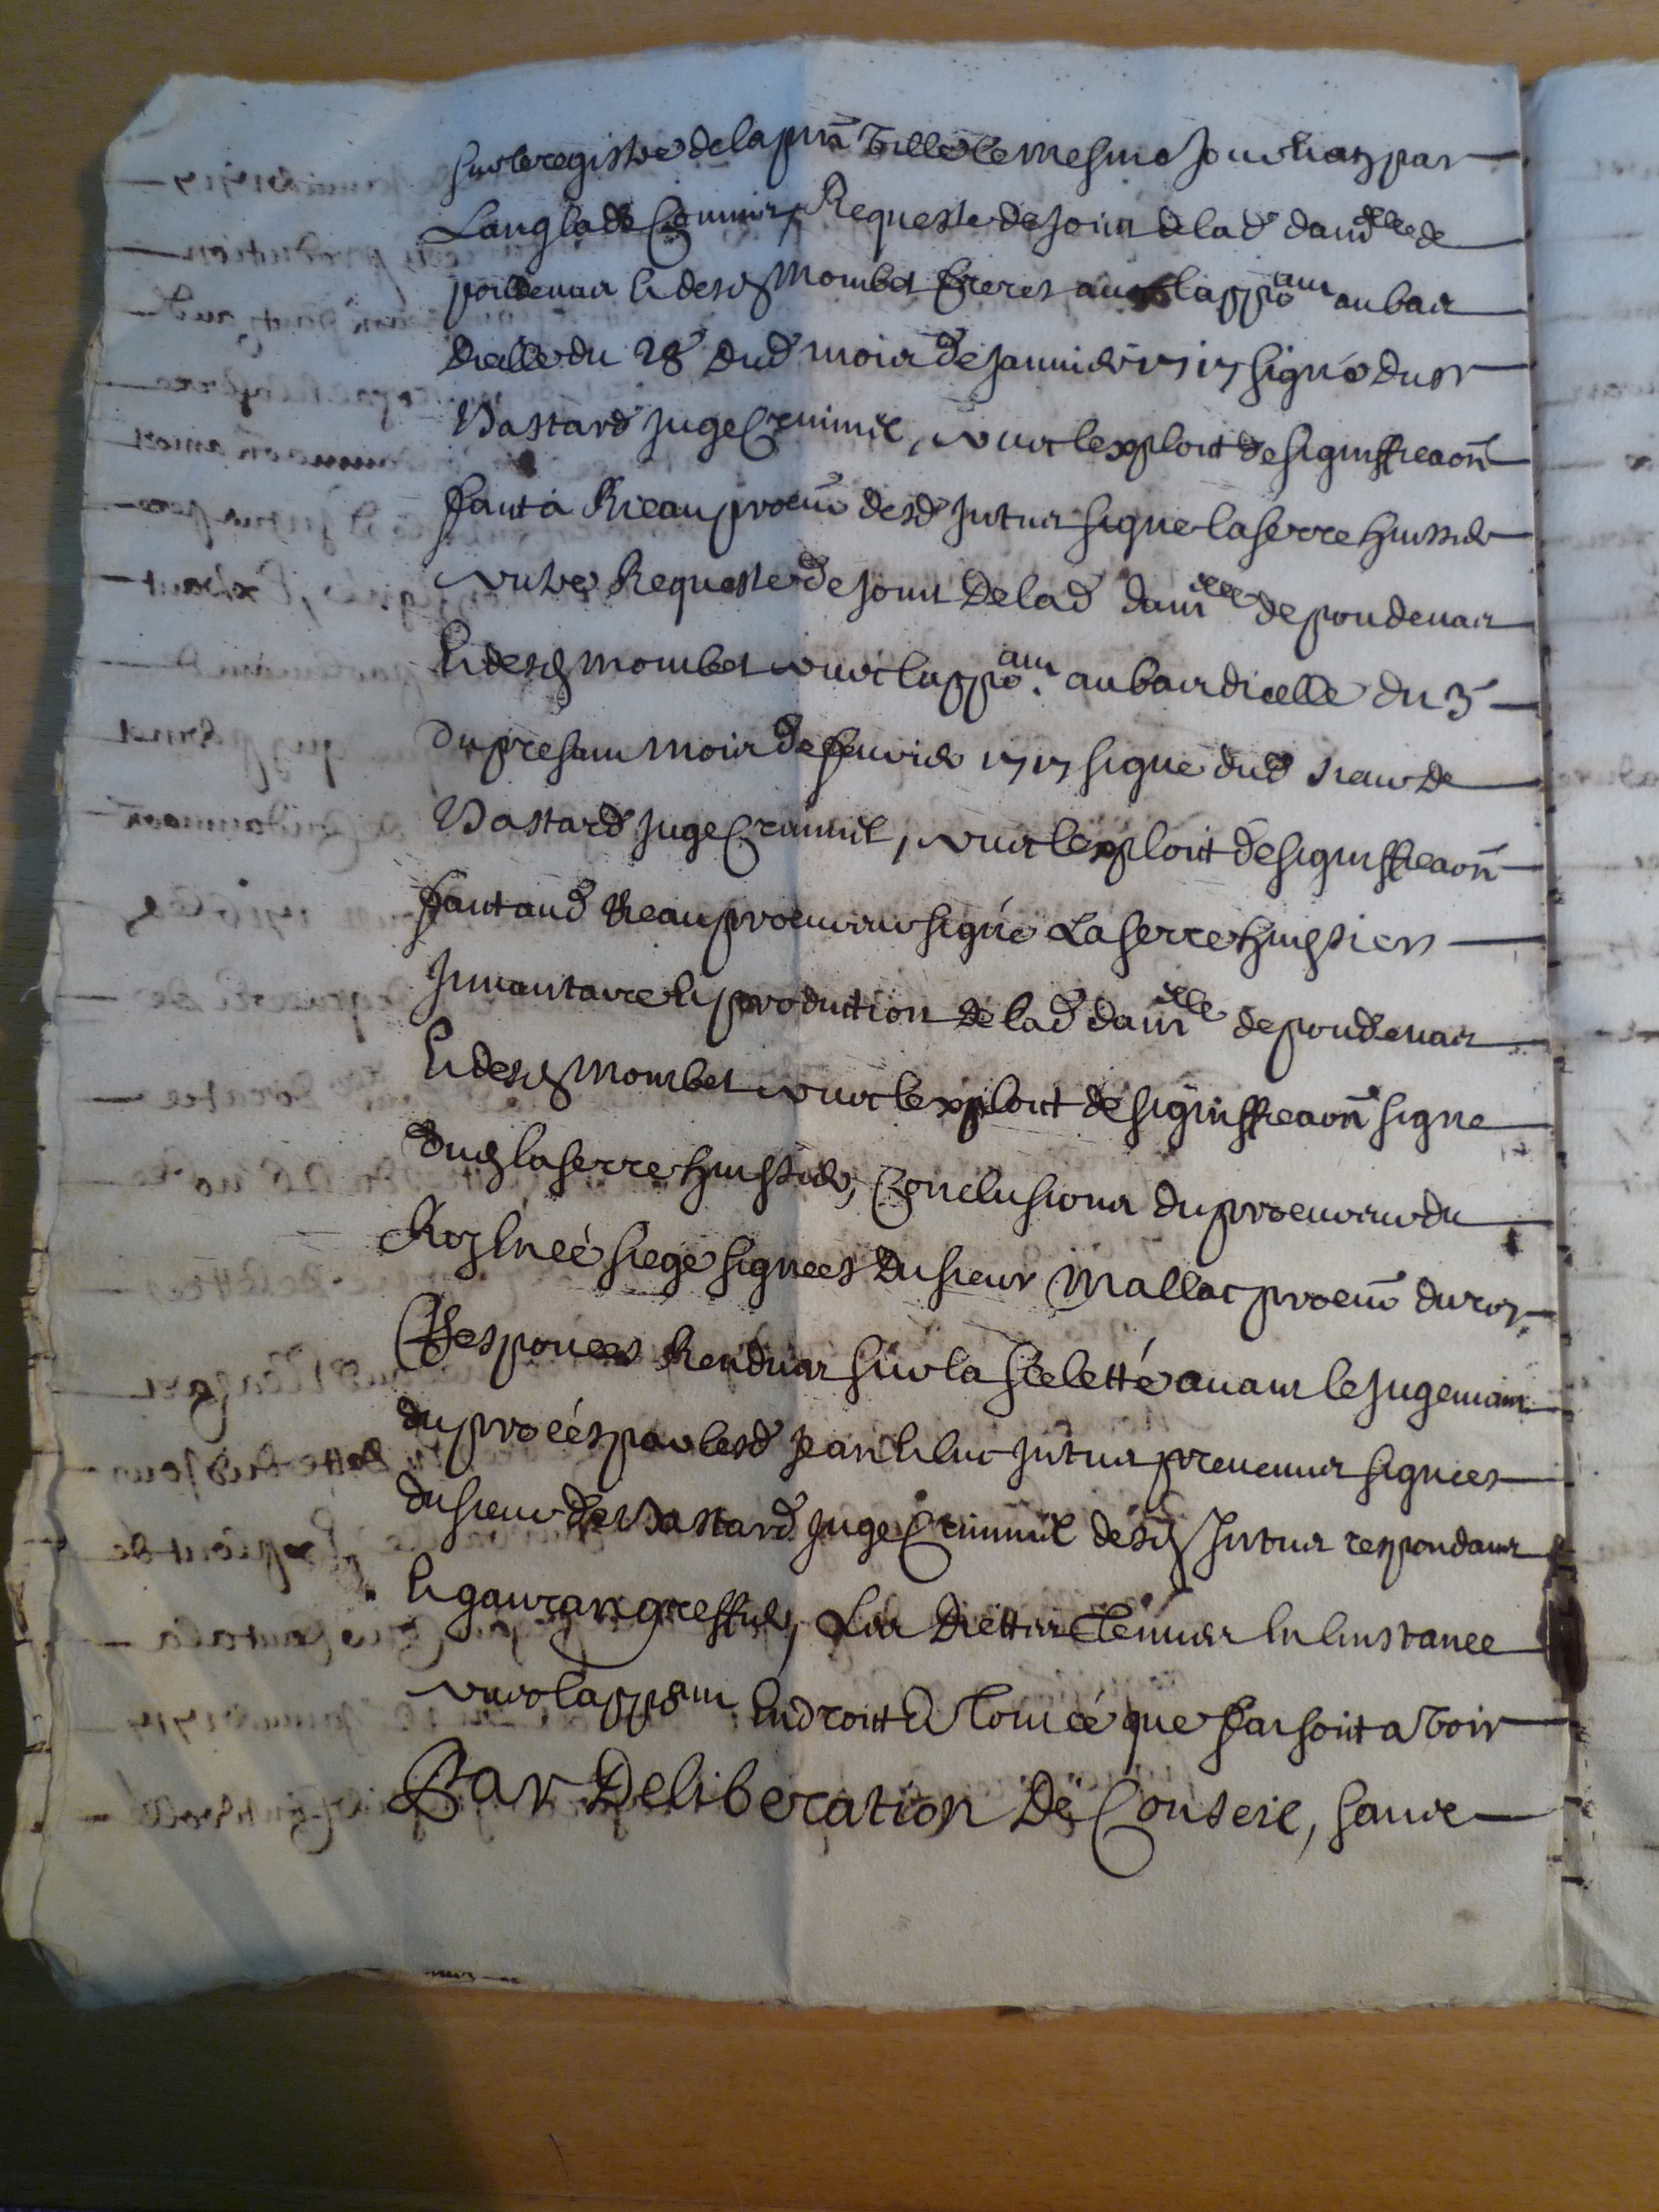 sur le registre de la pnt ville le mesme jour
Langlade Commis, Requeste de joint de lad damlle de
poudenas & desd Mombet freres avec lappoant au bas
dicelle du 28 dud mois de janvier 1717 signé du sr
Bastard juge Criminel, avec lexploit de signifficaon
fait a Rieau procur desd Intras signe Laserre huissier
autre Requeste de joint de lad damlle de poudenas
& desd Mombet avec lappoant au bas dicelle du 3e
du presant mois de fevrier 1717 signe dud sieur de
Bastard juge Criminel, avec lexploit de signifficaon
fait aud Rieau procureur signé Laserre huissier
Inventaire & production de lad damlle de poudenas
& desd Mombet avec lexploit de signifficaon signe
dud Laserre huissier, Conclusions du procureur du
Roy en ce siege signees du sieur Mallac procur du roy,
Responces Rendues sur la selette avant le jugemant
du proces par lesd jean & luc Intras prevenus signees
du sieur de Bastard juge Criminel desd Intras respondans
& gauran greffier, Les Diettes Tenues en linstance
avec lappoant en droit & Tout ce que faisoit a voir
Par Deliberation De Conseil, sans